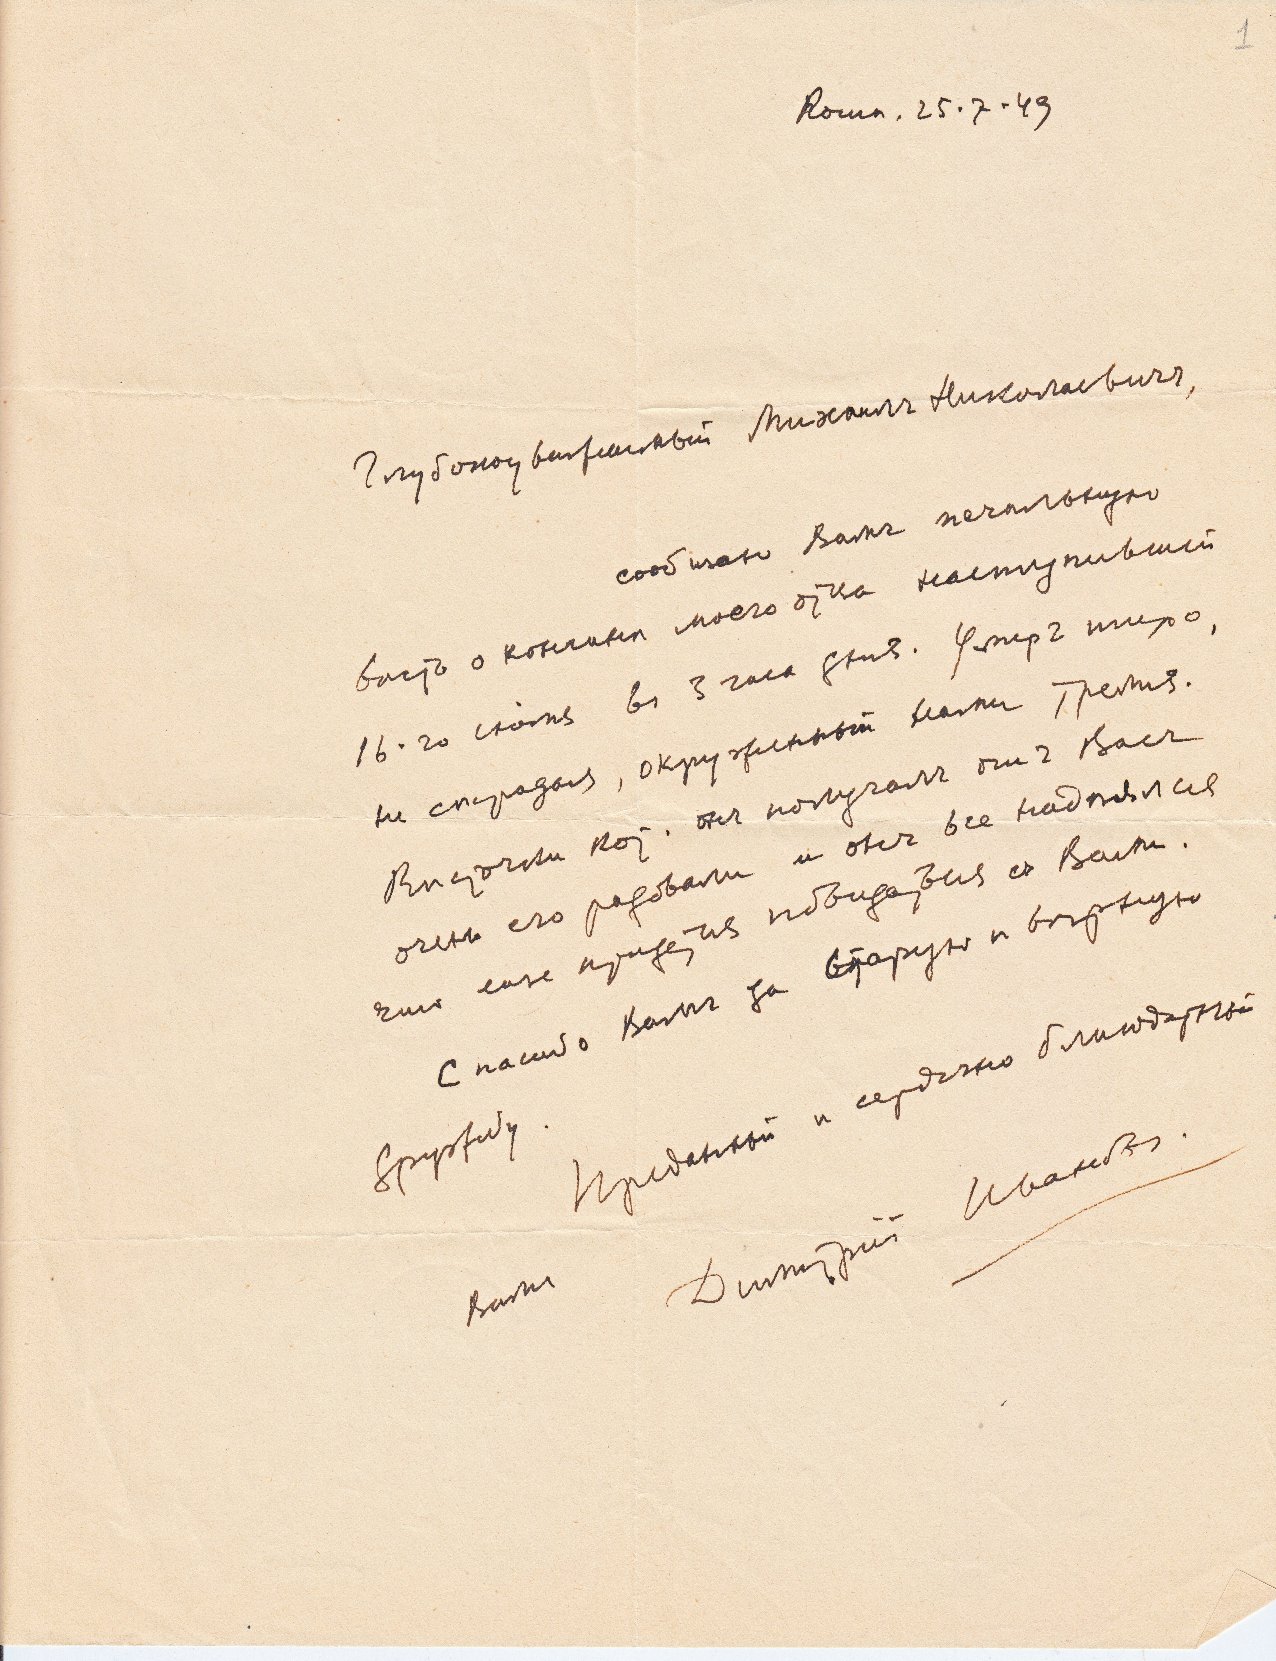 1
Roma. 25.7.49
Глубокоуважаемый Михаилъ Николаевичъ,
сообщаю Вамъ печальную
вѣсть о кончинѣ моего отца наступившей
16.го іюля въ 3 часа дня. Умеръ тихо,
не страдая, окруженный нами тремя.
Вѣсточки кот. онъ получалъ отъ Васъ
очень его радовали и онъ все надѣялся
что еще придется повидаться съ Вами.
Спасибо Вамъ за старую и вѣрную
дружбу.
Преданный и сердечно благодарный
Вамъ Димитрій Ивановъ.